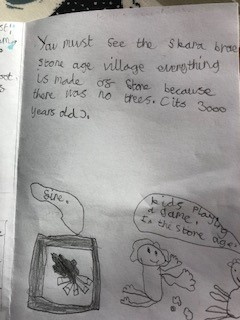 You must see the Skara brae
stone age village everything
is made of stone because
there was no trees. (its 3000
years old).
kids playing
a game.
in the stone age.